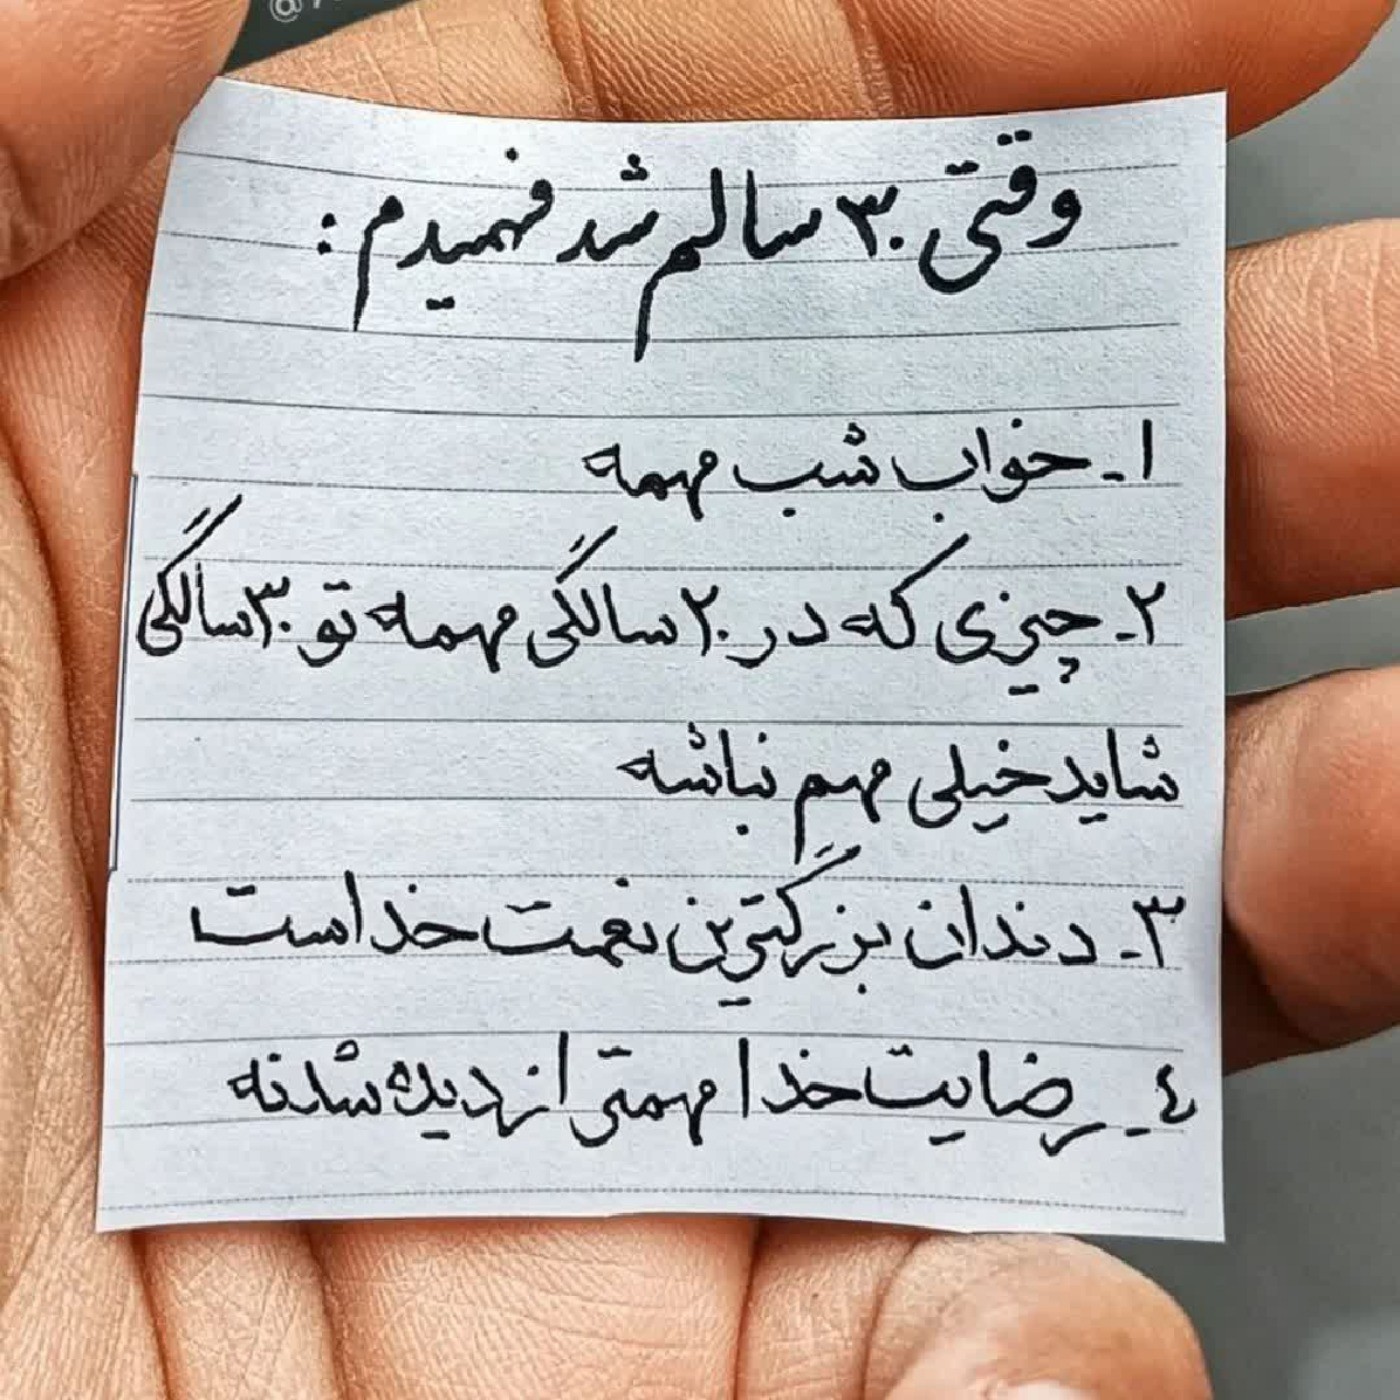 وقتی ۳۰ سالم شد فهمیدم :
۱ـ خواب شب مهمه
۲ـ چیزی که در ۲۰ سالگی مهمه تو ۳۰ سالگی
شاید خیلی مهم نباشه
۳ـ دندان بزرگترین نعمت خداست
٤ـ رضایت خدا مهمتر از دیده شدنه